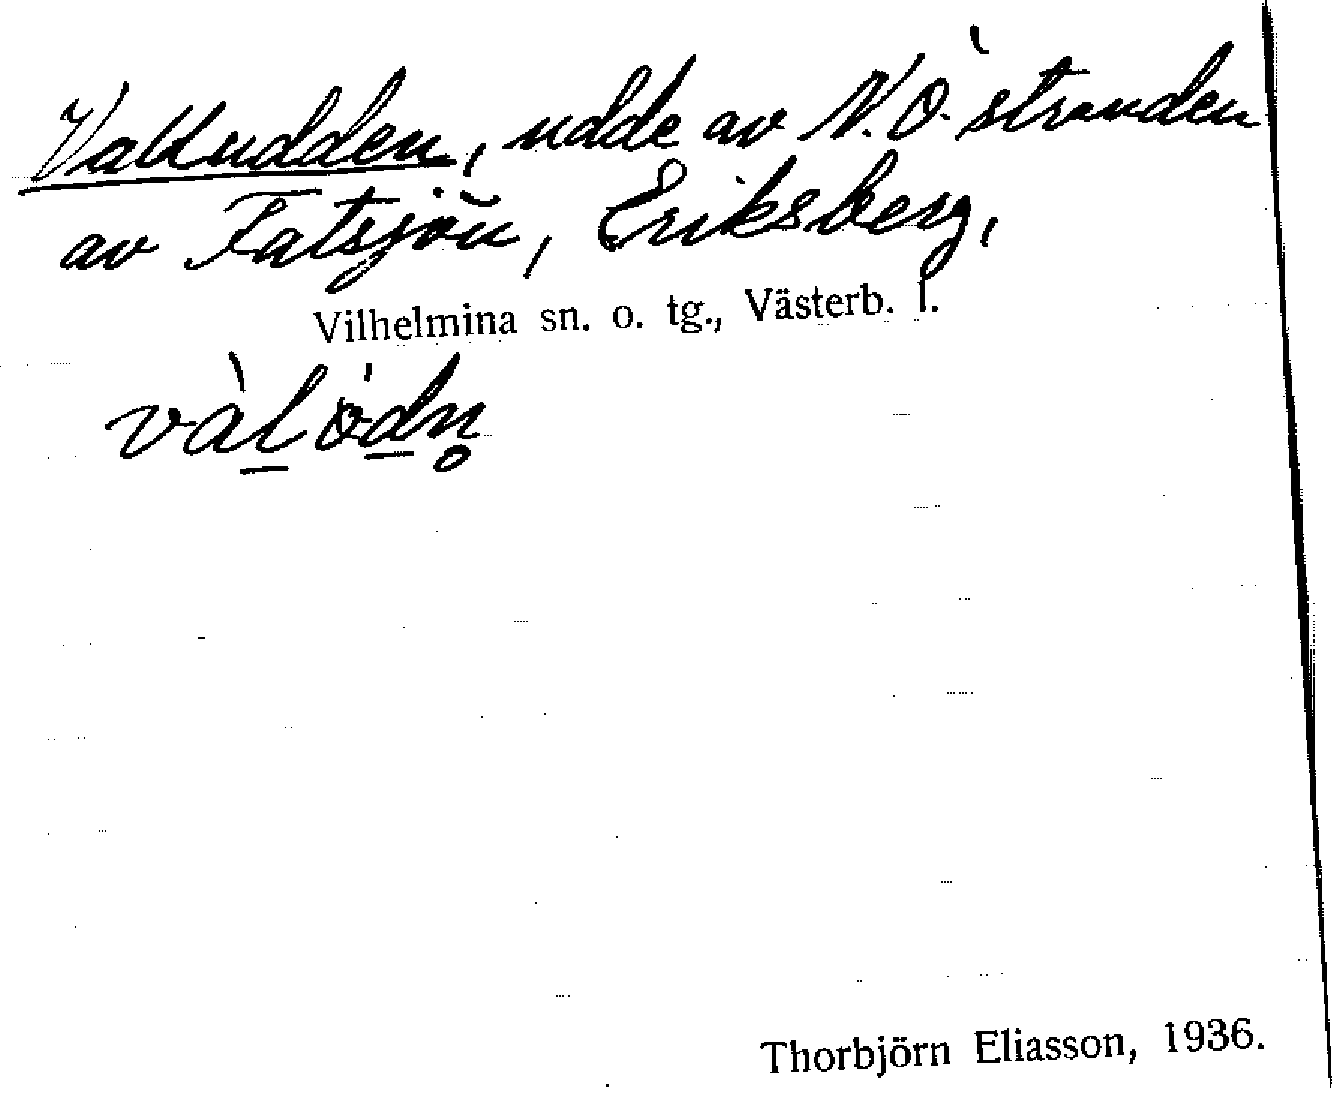 Valludden, udde av N.O. stranden
av Fatsjön, Eriksberg,
Vilhelmina sn. o. tg., Västerb. l.
Thorbjörn Eliasson, 1936.